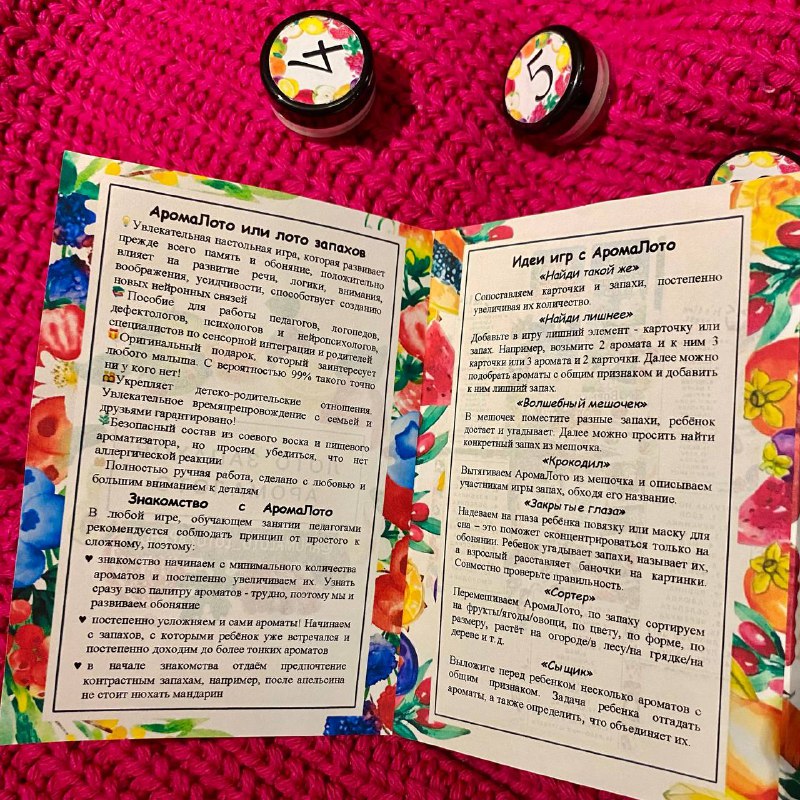 4
5
АромаЛото или лото запахов
💡Увлекательная настольная игра, которая развивает
прежде всего память и обоняние, положительно
влияет на развитие речи, логики, внимания,
воображения, усидчивости, способствует созданию
новых нейронных связей
📚 Пособие для работы педагогов, логопедов,
дефектологов, психологов и нейропсихологов,
специалистов по сенсорной интеграции и родителей
🎁Оригинальный подарок, который заинтересует
любого малыша. С вероятностью 99% такого точно
ни у кого нет!
Укрепляет детско-родительские отношения.
Увлекательное времяпрепровождение с семьей и
друзьями гарантировано!
Безопасный состав из соевого воска и пищевого
ароматизатора, но просим убедиться, что нет
аллергической реакции
Полностью ручная работа, сделано с любовью и
большим вниманием к деталям
Знакомство с АромаЛото
В любой игре, обучающем занятии педагогами
рекомендуется соблюдать принцип от простого к
сложному, поэтому:
♥ знакомство начинаем с минимального количества
ароматов и постепенно увеличиваем их. Узнать
сразу всю палитру ароматов - трудно, поэтому мы и
развиваем обоняние
♥ постепенно усложняем и сами ароматы! Начинаем
с запахов, с которыми ребёнок уже встречался и
постепенно доходим до более тонких ароматов
♥ в начале знакомства отдаём предпочтение
контрастным запахам, например, после апельсина
не стоит нюхать мандарин
Идеи игр с АромаЛото
«Найди такой же»
Сопоставляем карточки и запахи, постепенно
увеличивая их количество.
«Найди лишнее»
Добавьте в игру лишний элемент - карточку или
запах. Например, возьмите 2 аромата и к ним 3
карточки или 3 аромата и 2 карточки. Далее можно
подобрать ароматы с общим признаком и добавить
к ним лишний запах.
«Волшебный мешочек»
В мешочек поместите разные запахи, ребёнок
достает и угадывает. Далее можно просить найти
конкретный запах из мешочка.
«Крокодил»
Вытягиваем АромаЛото из мешочка и описываем
участникам игры запах, обходя его название.
«Закрытые глаза»
Надеваем на глаза ребёнка повязку или маску для
сна – это поможет сконцентрироваться только на
обонянии. Ребенок угадывает запахи, называет их,
а взрослый расставляет баночки на картинки.
Совместно проверьте правильность.
«Сортер»
Перемешиваем АромаЛото, по запаху сортируем
на фрукты/ягоды/овощи, по цвету, по форме, по
размеру, растёт на огороде/в лесу/на грядке/на
дереве и т.д.
«Сыщик»
Выложите перед ребенком несколько ароматов с
общим признаком. Задача ребенка отгадать
ароматы, а также определить, что объединяет их.